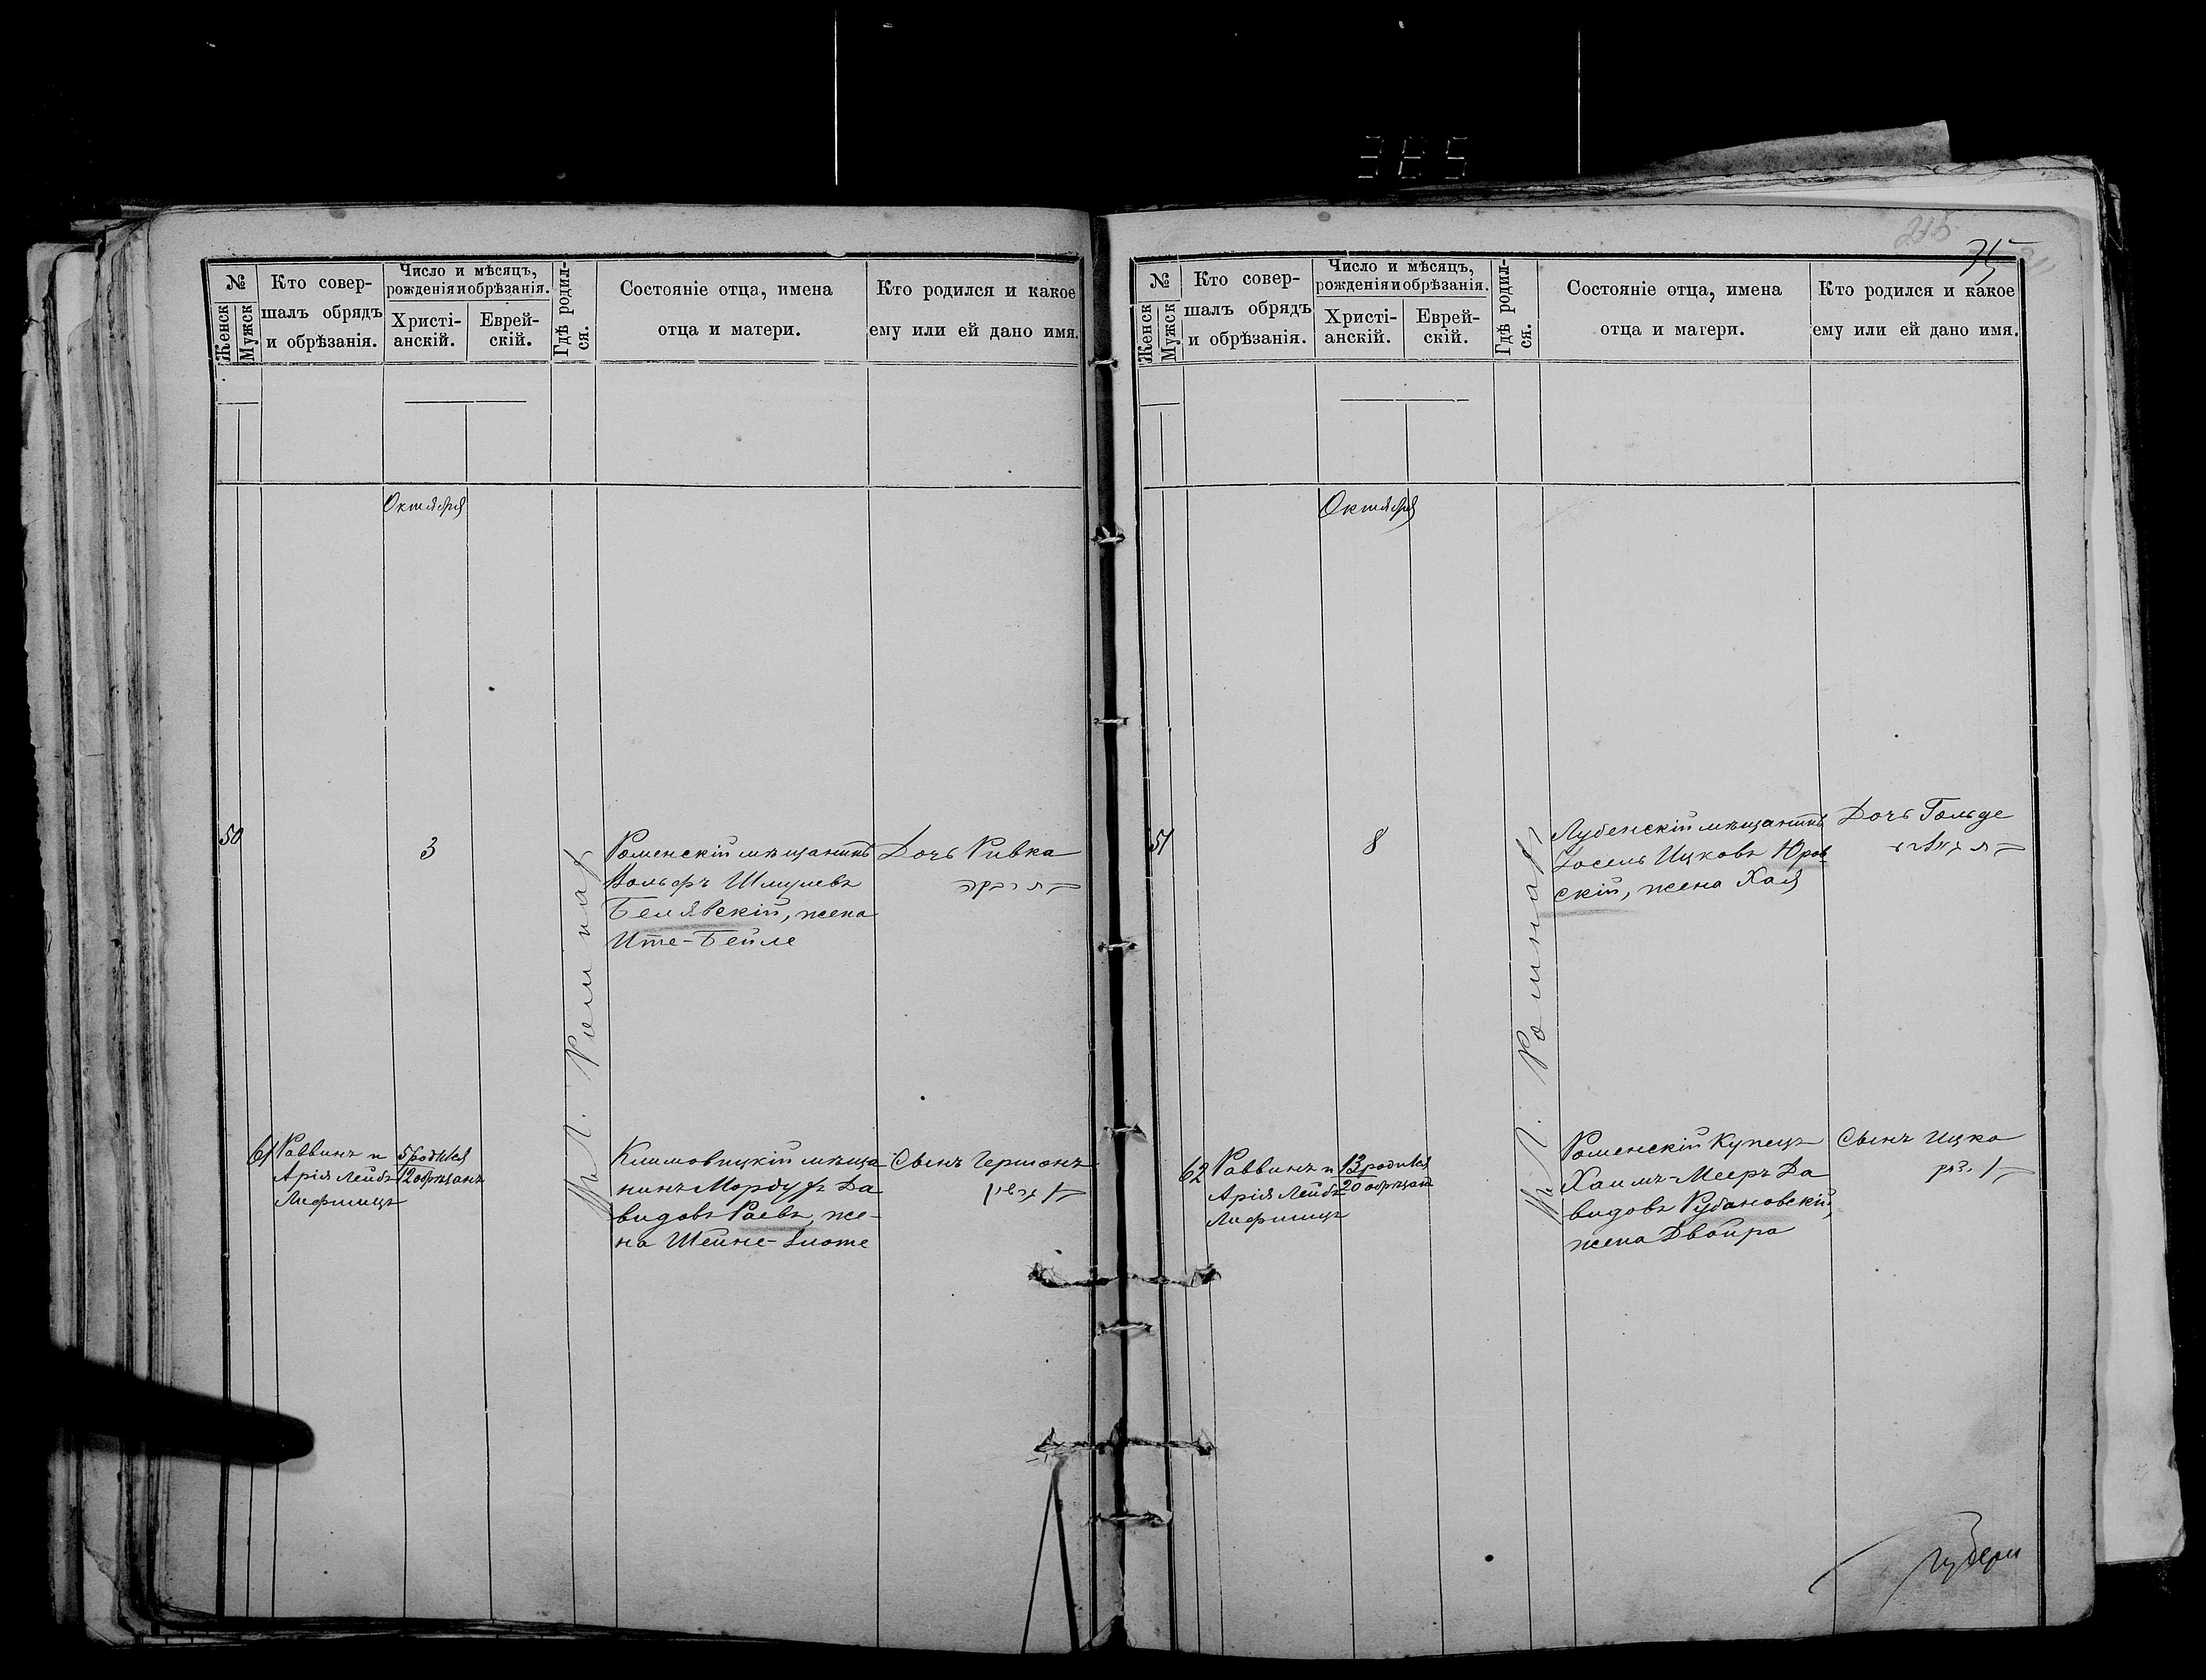 385
215
35
№
Женск
Мужск
Кто совер-
шалъ обрядъ
и обрѣзанія.
Число и мѣсяцъ,
рожденія и обрѣзанія.
Христі-
анскій.
Еврей-
скій.
Гдѣ родил-
ся.
Состояніе отца, имена
отца и матери.
Кто родился и какое
ему или ей дано имя.
Октября
50
3
Роменскій мѣщанинъ
Вольфъ Шмулевъ
Белявскій, жена
Ите-Бейле
Дочь Ривка
רבקה
Въ г. Ромнах
61
Раввинъ и
Арія Лейбъ
Лифшицъ
5 родился
12 обрѣзанъ
Климовицкій мѣща
нинъ Мордух Да
видовъ Раевъ, же-
на Шейне-Злоте
Сынъ Гершонъ
גרשון
№
Женск
Мужск
Кто совер-
шалъ обрядъ
и обрѣзанія.
Число и мѣсяцъ,
рожденія и обрѣзанія.
Христі-
анскій.
Еврей-
скій.
Гдѣ родил-
ся.
Состояніе отца, имена
отца и матери.
Кто родился и какое
ему или ей дано имя.
Октября
51
8
Лубенскій мѣщанинъ
Іосель Ицковъ Юров
скій, жена Хая
Дочь Гольде
Въ г. Ромнах
62
Раввинъ и
Арія Лейбъ
Лифшицъ
13 родился
20 обрѣзанъ
Роменскій Купецъ
Хаимъ-Мееръ Да
видовъ Рубановскій,
жена Двойра
Сынъ Ицко
Губерн